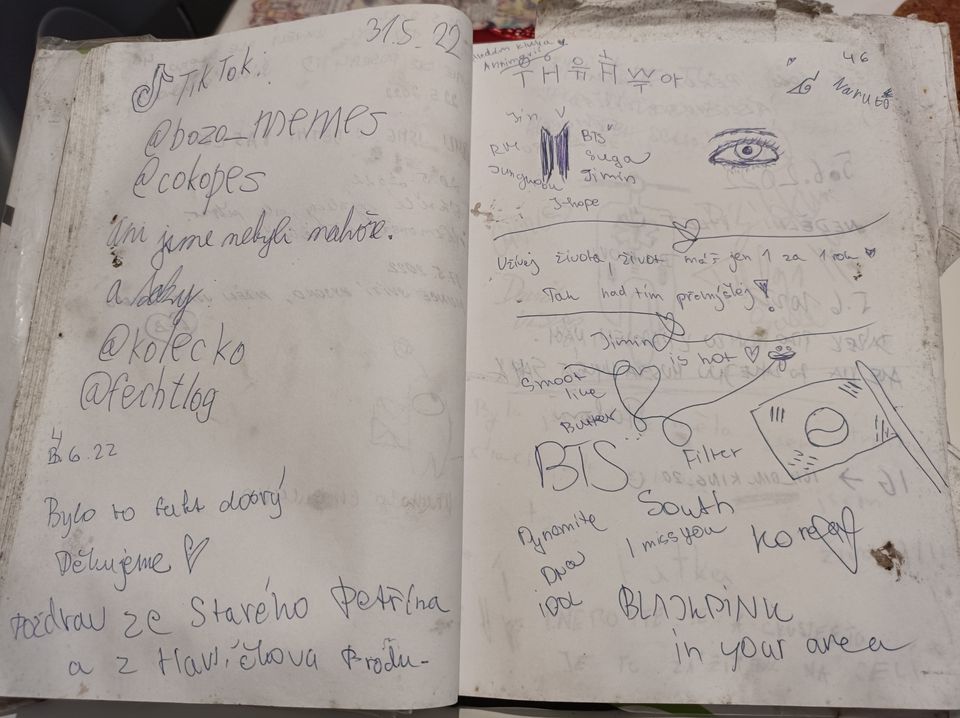 31.5.22
TikTok:
@bozo_memes
@cokopes
ani jsme nebyli nahoře.
a
@kolecko
@fechtlog
4.6.22
Bylo to fakt doorý
Děkujeme ♡
Pozdrav ze Starého Petřína
a z Havlíčkova Brodu-
4 6
Naruto
Jin V
RM
BTS
Suga
Jimin
J-hope
Užívej života, život máš jen 1 za 1 rok ♥
Tak nad tím přemýšlej!
Jimin
is hot ♡
Smoot
like
Butter
BTS
Filter
South
Korea
I miss you
Dynamite
DNA
idol
BLACKPINK
in your area